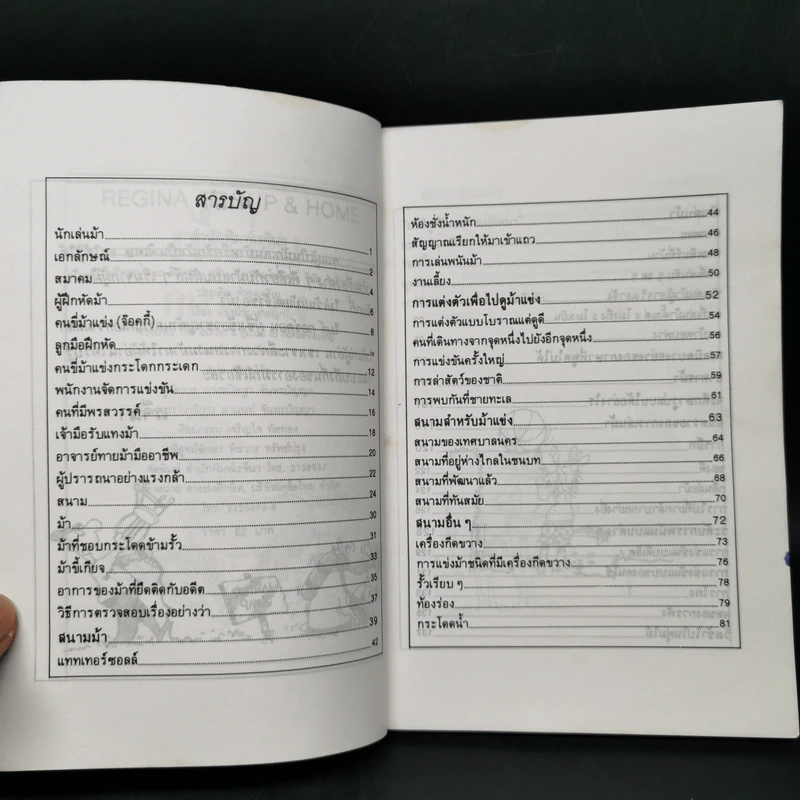 สารบัญ
นักเล่นม้า 1
เอกลักษณ์ 2
สมาคม 4
ผู้ฝึกหัดม้า 6
คนขี่ม้าแข่ง (จ๊อคกี้) 8
ลูกมือฝึกหัด
คนขี่ม้าแข่งกระโดกกระเดก 12
พนักงานจัดการแข่งขัน 14
คนที่มีพรสวรรค์ 16
เจ้ามือรับแทงม้า 18
อาจารย์ทายม้ามืออาชีพ 20
ผู้ปรารถนาอย่างแรงกล้า 22
สนาม 24
ม้า 30
ม้าที่ชอบกระโดดข้ามรั้ว 31
ม้าขี้เกียจ 33
อาการของม้าที่ยึดติดกับอดีต 35
วิธีการตรวจสอบเรื่องอย่างว่า 37
สนามม้า 39
แททเทอร์ซอลล์ 42
ห้องชั่งน้ำหนัก 44
สัญญาณเรียกให้มาเข้าแถว 46
การเล่นพนันม้า 48
งานเลี้ยง 50
การแต่งตัวเพื่อไปดูม้าแข่ง 52
การแต่งตัวแบบโบราณแต่ดูดี 54
คนที่เดินทางจากจุดหนึ่งไปยังอีกจุดหนึ่ง 56
การแข่งขันครั้งใหญ่ 57
การล่าสัตว์ของชาติ 59
การพบกันที่ชายทะเล 61
สนามสำหรับม้าแข่ง 63
สนามของเทศบาลนคร 64
สนามที่อยู่ห่างไกลในชนบท 66
สนามที่พัฒนาแล้ว 68
สนามที่ทันสมัย 70
สนามอื่น ๆ 72
เครื่องกีดขวาง 73
การแข่งม้าชนิดที่มีเครื่องกีดขวาง 76
รั้วเรียบ ๆ 78
ท้องร่อง 79
กระโดดน้ำ 81